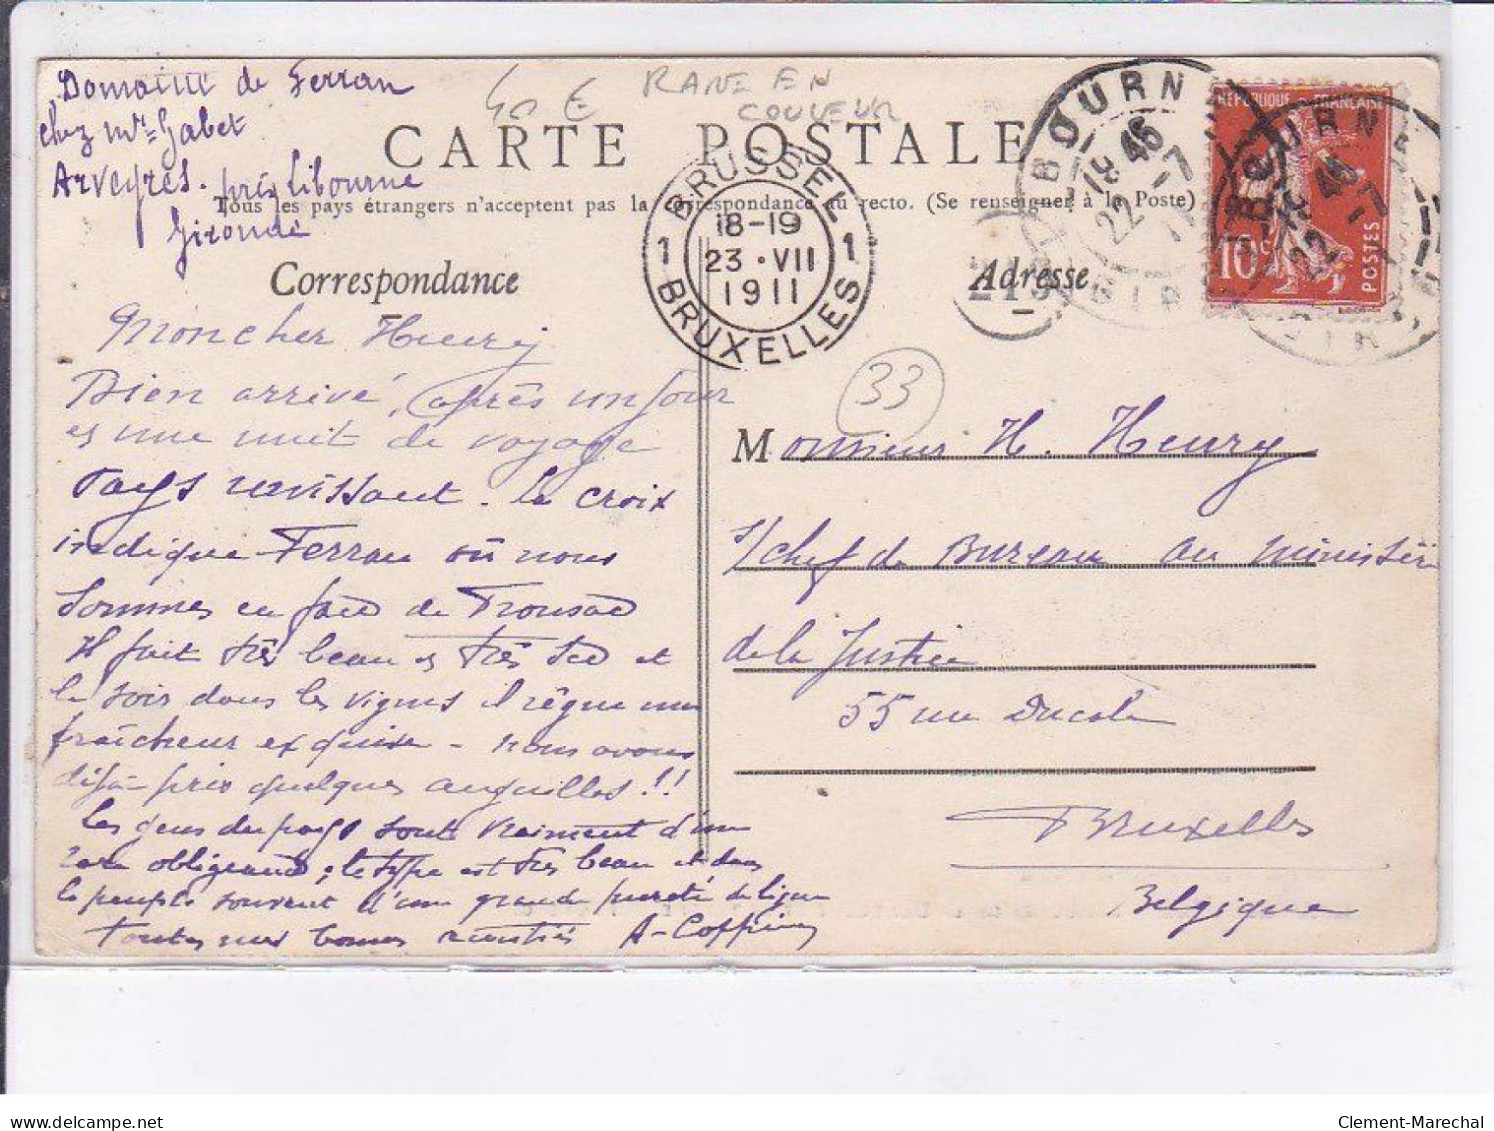 Domaine de Ferran
chez Mr Gabet
Arveyres. près Libourne
Gironde
40 €
RARE EN
COULEUR
CARTE POSTALE
Tous les pays étrangers n'acceptent pas la correspondance au recto. (Se renseigner à la Poste)
Correspondance
Adresse
BRUSSEL
1 18-19 1
23 · VII
1911
BRUXELLES
RÉPUBLIQUE FRANÇAISE
10c
POSTES
33
Mon cher Henry
Bien arrivé, après un jour
et une nuit de voyage
Pays ravissant. la croix
indique Ferran où nous
sommes en face de Fronsac
Il fait très beau et très sec et
le soir dans les vignes il règne une
fraîcheur exquise - nous avons
déjà pris quelques anguilles!!
Les gens du pays sont vraiment d'une
rare obligeance; le type est très beau et dans
le peuple souvent d'une grande pureté de ligne
Toutes mes bonnes amitiés A-Coppens
Monsieur H. Henry
s/chef de Bureau au Ministère
de la Justice
55 rue Ducale
Bruxelles
Belgique
delcampe.net
Clement-Marechal